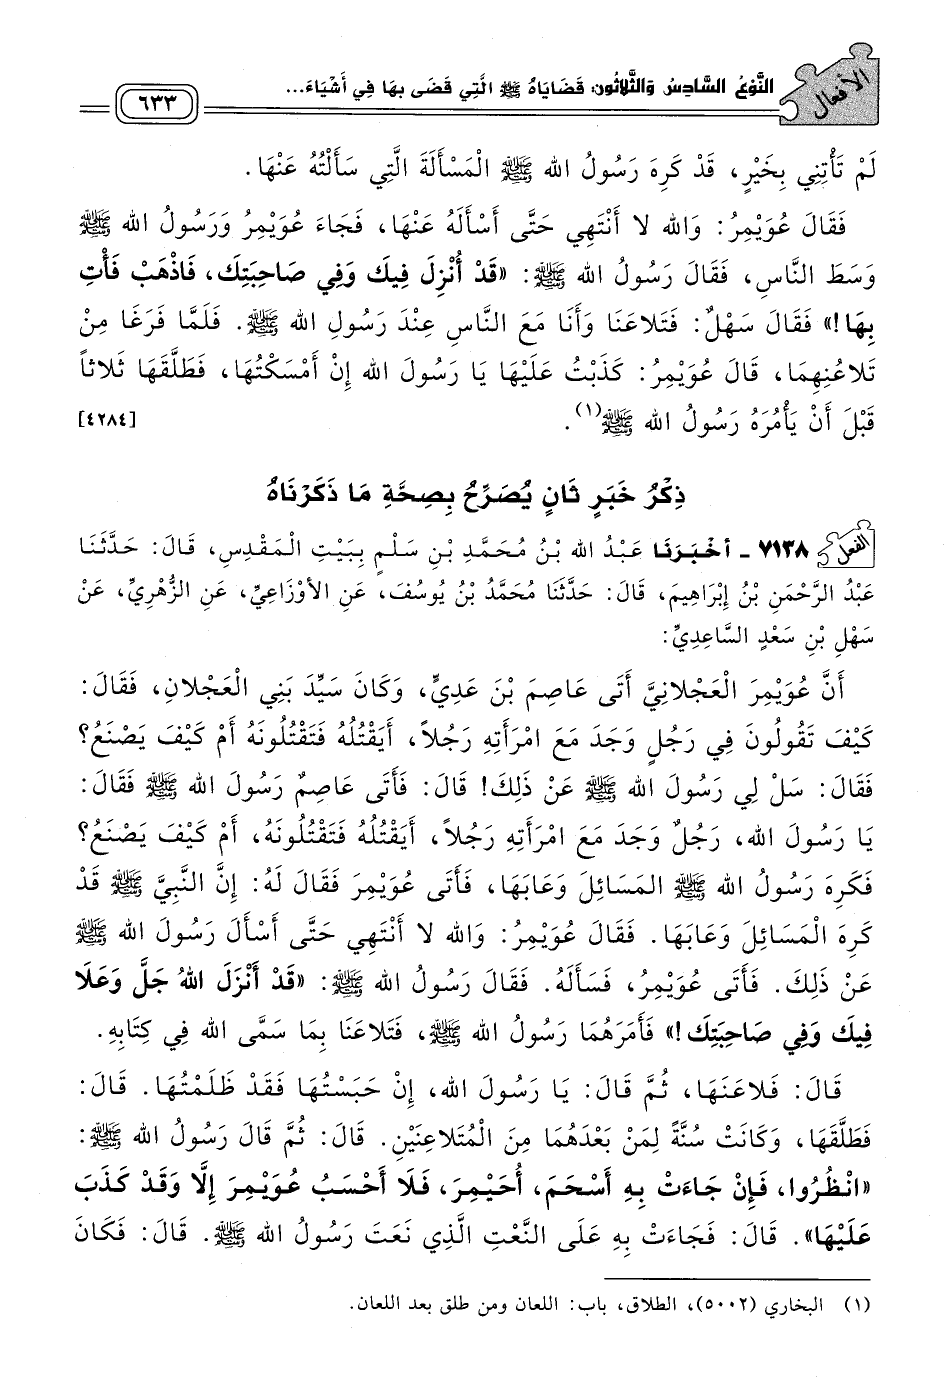 الأفعال
النَّوْعُ السَّادِسُ وَالثَّلاثُون: قَضَايَاهُ ﷺ الَّتِي قَضَى بِهَا فِي أَشْيَاءَ...
٦٣٣
لَمْ تَأْتِنِي بِخَيْرٍ، قَدْ كَرِهَ رَسُولُ الله ﷺ الْمَسْأَلَةَ الَّتِي سَأَلْتُهُ عَنْهَا.
فَقَالَ عُوَيْمِرُ: وَالله لا أَنْتَهِي حَتَّى أَسْأَلَهُ عَنْهَا، فَجَاءَ عُوَيْمِرُ وَرَسُولُ الله ﷺ
وَسَطَ النَّاسِ، فَقَالَ رَسُولُ الله ﷺ: «قَدْ أُنْزِلَ فِيكَ وَفِي صَاحِبَتِكَ، فَاذْهَبْ فَأْتِ
بِهَا!» فَقَالَ سَهْلٌ: فَتَلاعَنَا وَأَنَا مَعَ النَّاسِ عِنْدَ رَسُولِ الله ﷺ. فَلَمَّا فَرَغَا مِنْ
تَلاعُنِهِمَا، قَالَ عُوَيْمِرُ: كَذَبْتُ عَلَيْهَا يَا رَسُولَ الله إِنْ أَمْسَكْتُهَا، فَطَلَّقَهَا ثَلاثاً
قَبْلَ أَنْ يَأْمُرَهُ رَسُولُ الله ﷺ(١). [٤٢٨٤]
ذِكْرُ خَبَرٍ ثَانٍ يُصَرِّحُ بِصِحَّةِ مَا ذَكَرْنَاهُ
الفعل ٧١٣٨ - أَخْبَرَنَا عَبْدُ الله بْنُ مُحَمَّدِ بْنِ سَلْمٍ بِبَيْتِ الْمَقْدِسِ، قَالَ: حَدَّثَنَا
عَبْدُ الرَّحْمَنِ بْنُ إِبْرَاهِيمَ، قَالَ: حَدَّثَنَا مُحَمَّدُ بْنُ يُوسُفَ، عَنِ الأَوْزَاعِيِّ، عَنِ الزُّهْرِيِّ، عَنْ
سَهْلِ بْنِ سَعْدٍ السَّاعِدِيِّ:
أَنَّ عُوَيْمِرَ الْعَجْلانِيَّ أَتَى عَاصِمَ بْنَ عَدِيٍّ، وَكَانَ سَيِّدَ بَنِي الْعَجْلانِ، فَقَالَ:
كَيْفَ تَقُولُونَ فِي رَجُلٍ وَجَدَ مَعَ امْرَأَتِهِ رَجُلاً، أَيَقْتُلُهُ فَتَقْتُلُونَهُ أَمْ كَيْفَ يَصْنَعُ؟
فَقَالَ: سَلْ لِي رَسُولَ الله ﷺ عَنْ ذَلِكَ! قَالَ: فَأَتَى عَاصِمٌ رَسُولَ الله ﷺ فَقَالَ:
يَا رَسُولَ الله، رَجُلٌ وَجَدَ مَعَ امْرَأَتِهِ رَجُلاً، أَيَقْتُلُهُ فَتَقْتُلُونَهُ، أَمْ كَيْفَ يَصْنَعُ؟
فَكَرِهَ رَسُولُ الله ﷺ الْمَسَائِلَ وَعَابَهَا، فَأَتَى عُوَيْمِرَ فَقَالَ لَهُ: إِنَّ النَّبِيَّ ﷺ قَدْ
كَرِهَ الْمَسَائِلَ وَعَابَهَا. فَقَالَ عُوَيْمِرُ: وَالله لا أَنْتَهِي حَتَّى أَسْأَلَ رَسُولَ الله ﷺ
عَنْ ذَلِكَ. فَأَتَى عُوَيْمِرُ، فَسَأَلَهُ. فَقَالَ رَسُولُ الله ﷺ: «قَدْ أَنْزَلَ اللهُ جَلَّ وَعَلَا
فِيكَ وَفِي صَاحِبَتِكَ!» فَأَمَرَهُمَا رَسُولُ الله ﷺ، فَتَلاعَنَا بِمَا سَمَّى الله فِي كِتَابِهِ.
قَالَ: فَلاعَنَهَا، ثُمَّ قَالَ: يَا رَسُولَ الله، إِنْ حَبَسْتُهَا فَقَدْ ظَلَمْتُهَا. قَالَ:
فَطَلَّقَهَا، وَكَانَتْ سُنَّةً لِمَنْ بَعْدَهُمَا مِنَ الْمُتَلاعِنَيْنِ. قَالَ: ثُمَّ قَالَ رَسُولُ الله ﷺ:
«انْظُرُوا، فَإِنْ جَاءَتْ بِهِ أَسْحَمَ، أُحَيْمِرَ، فَلَا أَحْسَبُ عُوَيْمِرَ إِلَّا وَقَدْ كَذَبَ
عَلَيْهَا». قَالَ: فَجَاءَتْ بِهِ عَلَى النَّعْتِ الَّذِي نَعَتَ رَسُولُ الله ﷺ. قَالَ: فَكَانَ
(١) البخاري (٥٠٠٢)، الطلاق، باب: اللعان ومن طلق بعد اللعان.